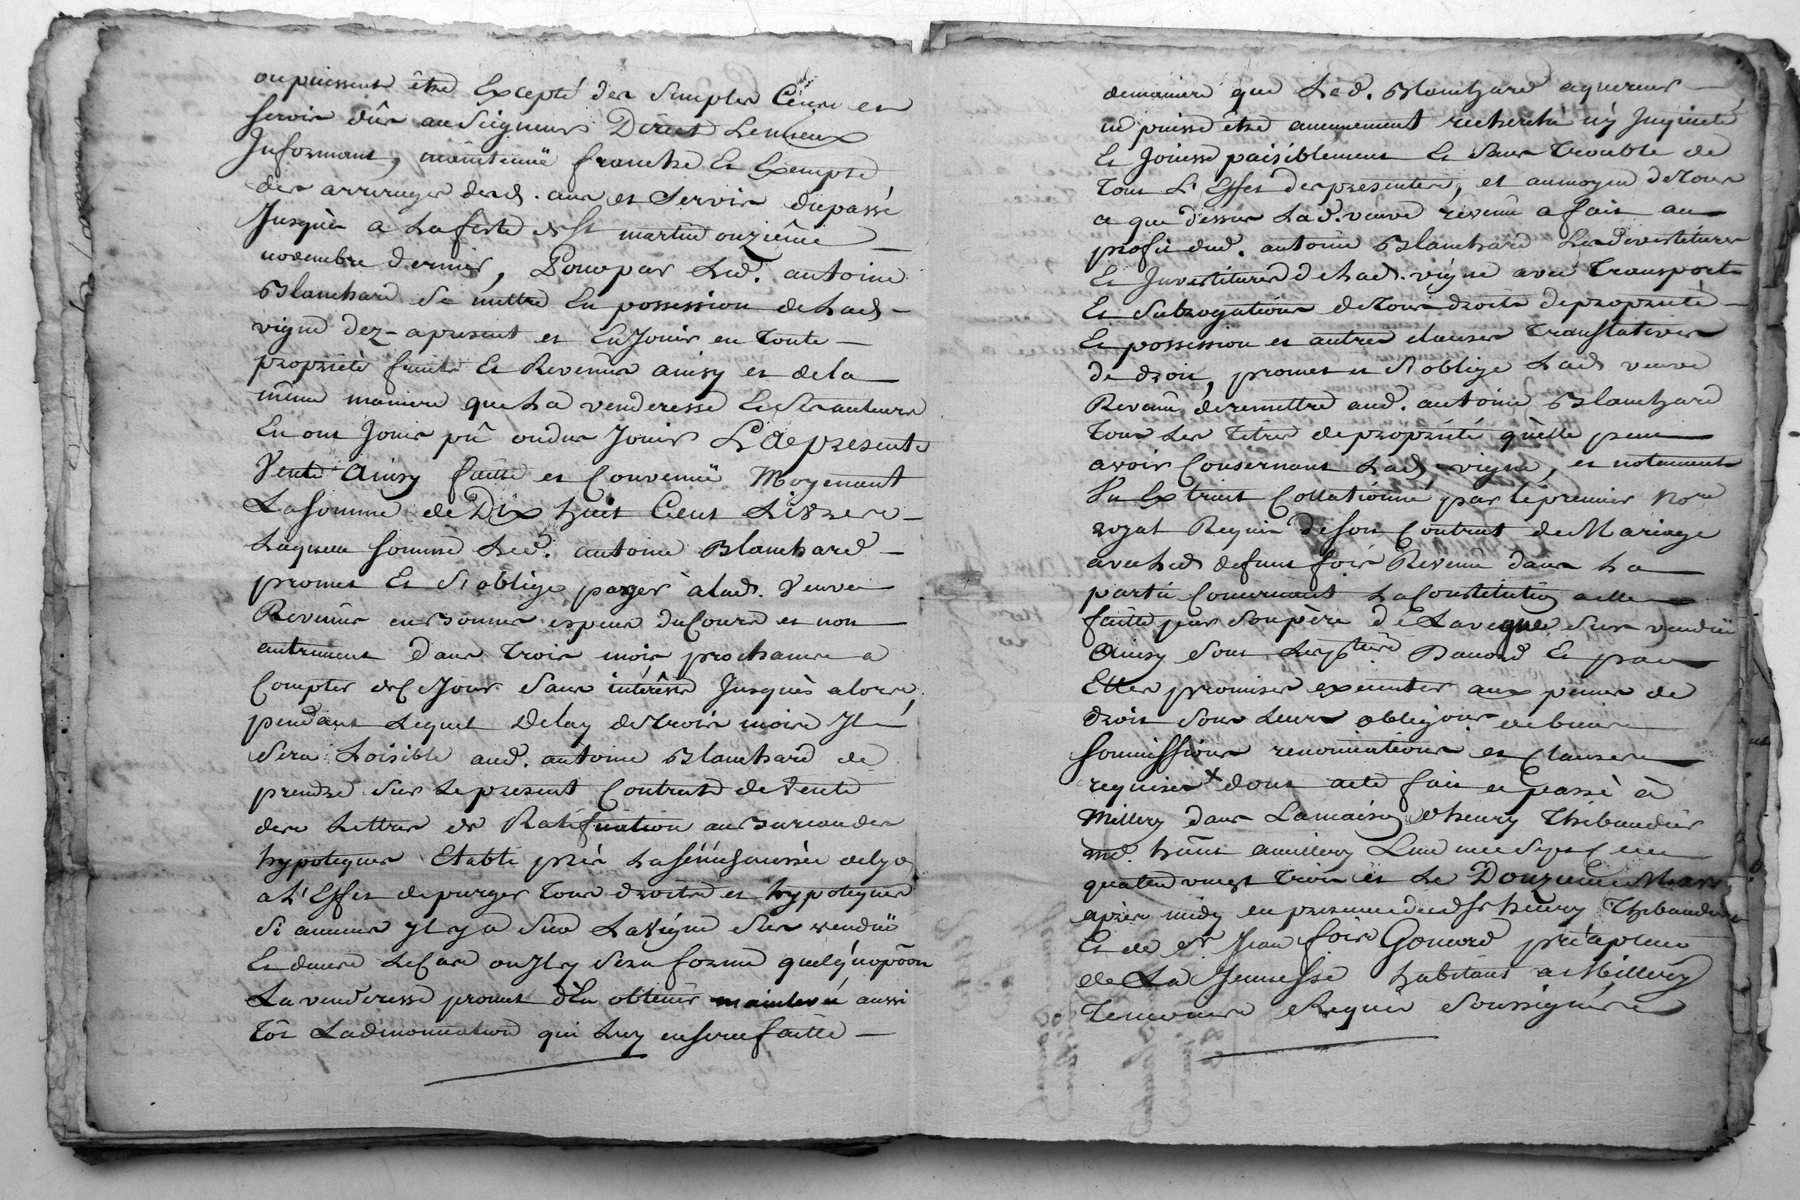 ou puissent être Excepté des simples Cens et
servis dûs au Seigneur Direct
Informant, maintenuë franche Et Exempte
des arrerages desd. cens et Servis du passé
Jusques a La feste de St martin onzième
novembre dernier, Pour par Led. antoine
Blanchard Se mettre En possession de Lad.
vigne dez-apresent et En Jouir en toute
proprieté fruits Et Revenus ainsy et de la
même maniere que La venderesse Et Ses auteurs
En ont Jouis pû ou dus Jouir La presente
Vente Ainsy faitte et Convenuë Moyenant
La somme de Dix huit Cent Livres
Laquelle somme Led. antoine Blanchard
promet Et S'oblige payer à lad. Veuve
Revenus en bonnes especes du Cours et non
autrement dans trois mois prochains a
Compter de Ce Jour Sans intérêsts Jusques alors,
pendant Lequel Delay de trois mois Il
Sera Loisible aud. antoine Blanchard de
prendre Sur Le present Contract de Vente
des Lettres de Ratification au Bureau des
hypoteques Etabli près La sénéchaussée de Lyon
a L'Effet de purger tous droits et hypoteques
Si aucuns Il y a Sur La Vigne Sus venduë
Et dans Le Cas ou Il y Sera formé quelqu'oppôon
La venderesse promet d'En obtenir mainlevée aussi
tôt La dénonciation qui Luy en Sera faitte
demaniere que Led. Blanchard aquereur
ne puisse être aucunement recherché n'y Inquieté
Et Jouisse paisiblement Et Sans trouble de
tout L'Effet des presentes, et aumoyen de tout
ce que dessus Lad. veuve revenu a fait au
profit dud. antoine Blanchard Les Devestitures
Et Investitures de Lad. vigne avec transport
Et Subrogations de tous droits de proprieté
Et possession et autres clauses translatives
de droit, promet et S'oblige Lad. veuve
Revenu de remettre aud. antoine Blanchard
tous Les titres de proprieté qu'elle peut
avoir Consernant Lad. vigne, et notament
Un Extrait Collationné par le premier No.re
royal Requis de son Contrat de Mariage
avec Led. defunt fois Revenu dans La
partie Concernant La Constitution a elle
faitte par Son père de La vigne Sus venduë
Ainsy Sont Les parties D'accord Et par
Elles promises executer aux peines de
droit Sous Leurs obligôns de biens
Soumissions renonciations et Clauses
requises x dont acte fait et passé à
Millery dans La maison d'henry Thibaudier
md. habitt amillery L'an mil Sept Cent
quatre vingt trois et Le Douzieme Mars
après midy en presence dud. Sr henry Thibaudier
Et de Sr Jean fois Gonard précepteur
de La Jeunesse habitant a Millery
temoins Requis Soussignés